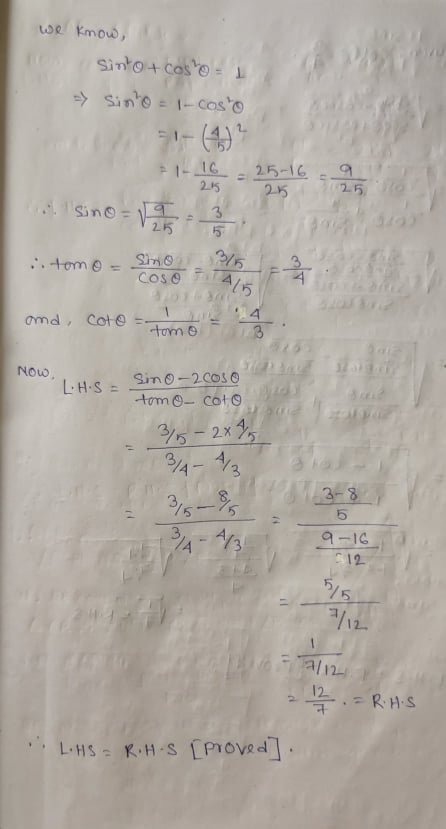 we know,
sin²θ + cos²θ = 1
⇒ sin²θ = 1 - cos²θ
= 1 - (4/5)²
= 1 - 16/25 = 25-16/25 = 9/25
∴ sinθ = √9/25 = 3/5.
∴ tanθ = sinθ/cosθ = 3/5/4/5 = 3/4.
and, cotθ = 1/tanθ = 4/3.
Now,
L.H.S = sinθ - 2cosθ/tanθ - cotθ
= 3/5 - 2×4/5/3/4 - 4/3
= 3/5 - 8/5/3/4 - 4/3 = 3-8/5/9-16/12
= 5/5/7/12
= 1/7/12
= 12/7. = R.H.S
∴ L.HS = R.H.S [Proved].